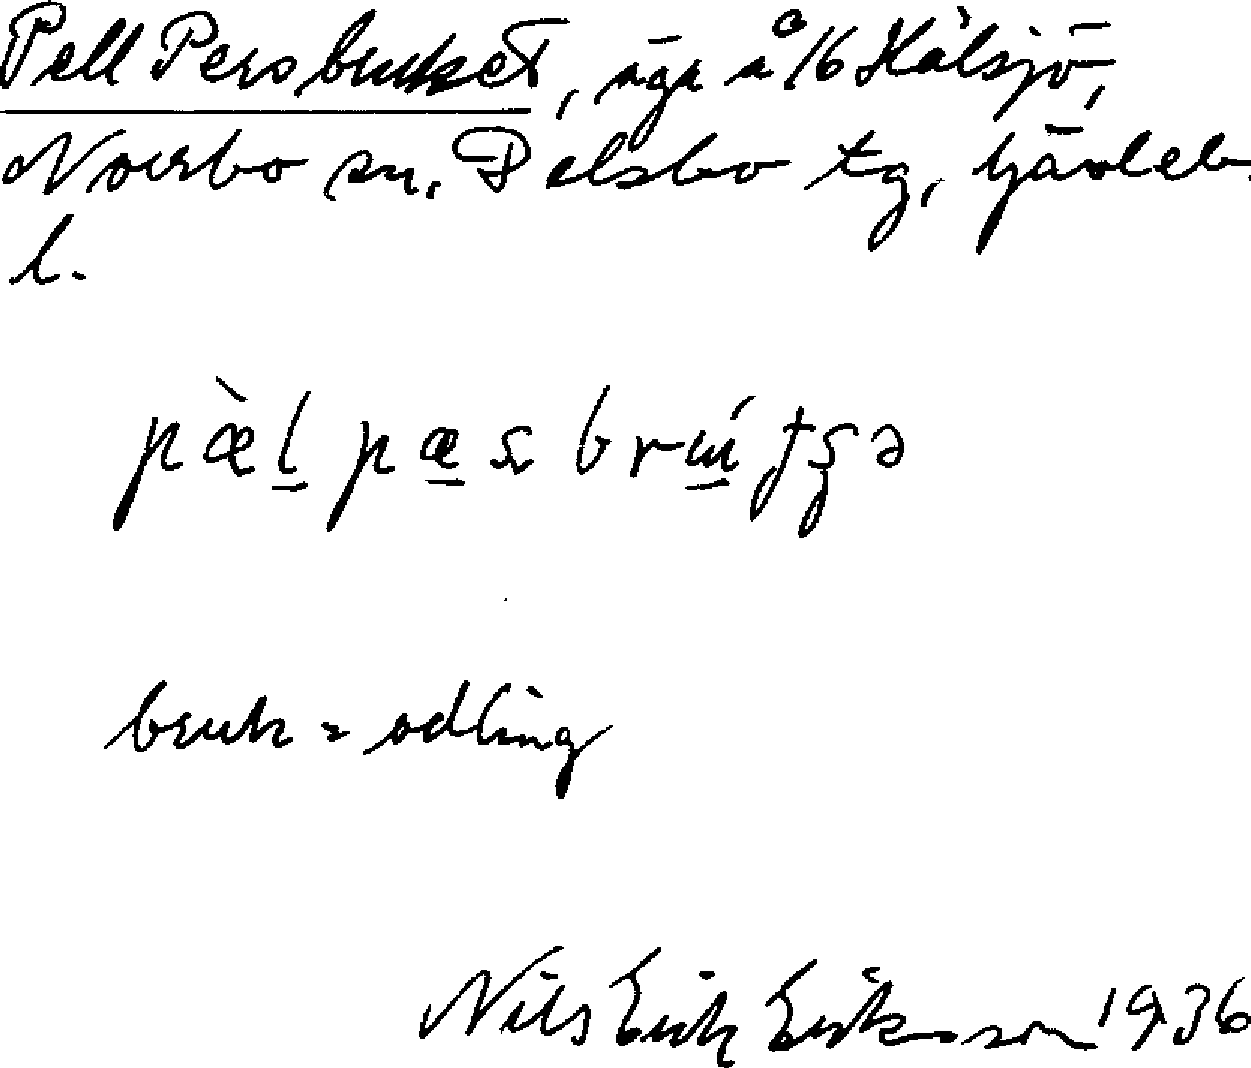 Pell Persbruket, äga å 16 Hålsjö,
Norrbo sn. Delsbo tg, Gävleb.
l.
pæ̀l̲ pæ̲s br
bruk = odling
Nils Erik Eriksson 1936